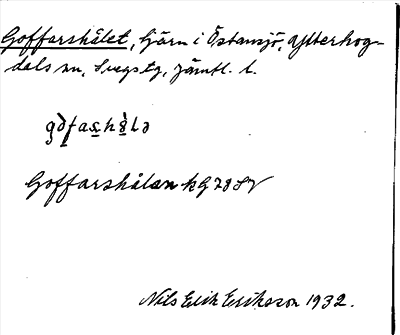 Goffarshålet, tjärn i Östansjö, Ytterhog-
dals sn, Svegs tg, Jämtl. l.
Goffarshålan kG 28 SV
Nils Erik Eriksson 1932.